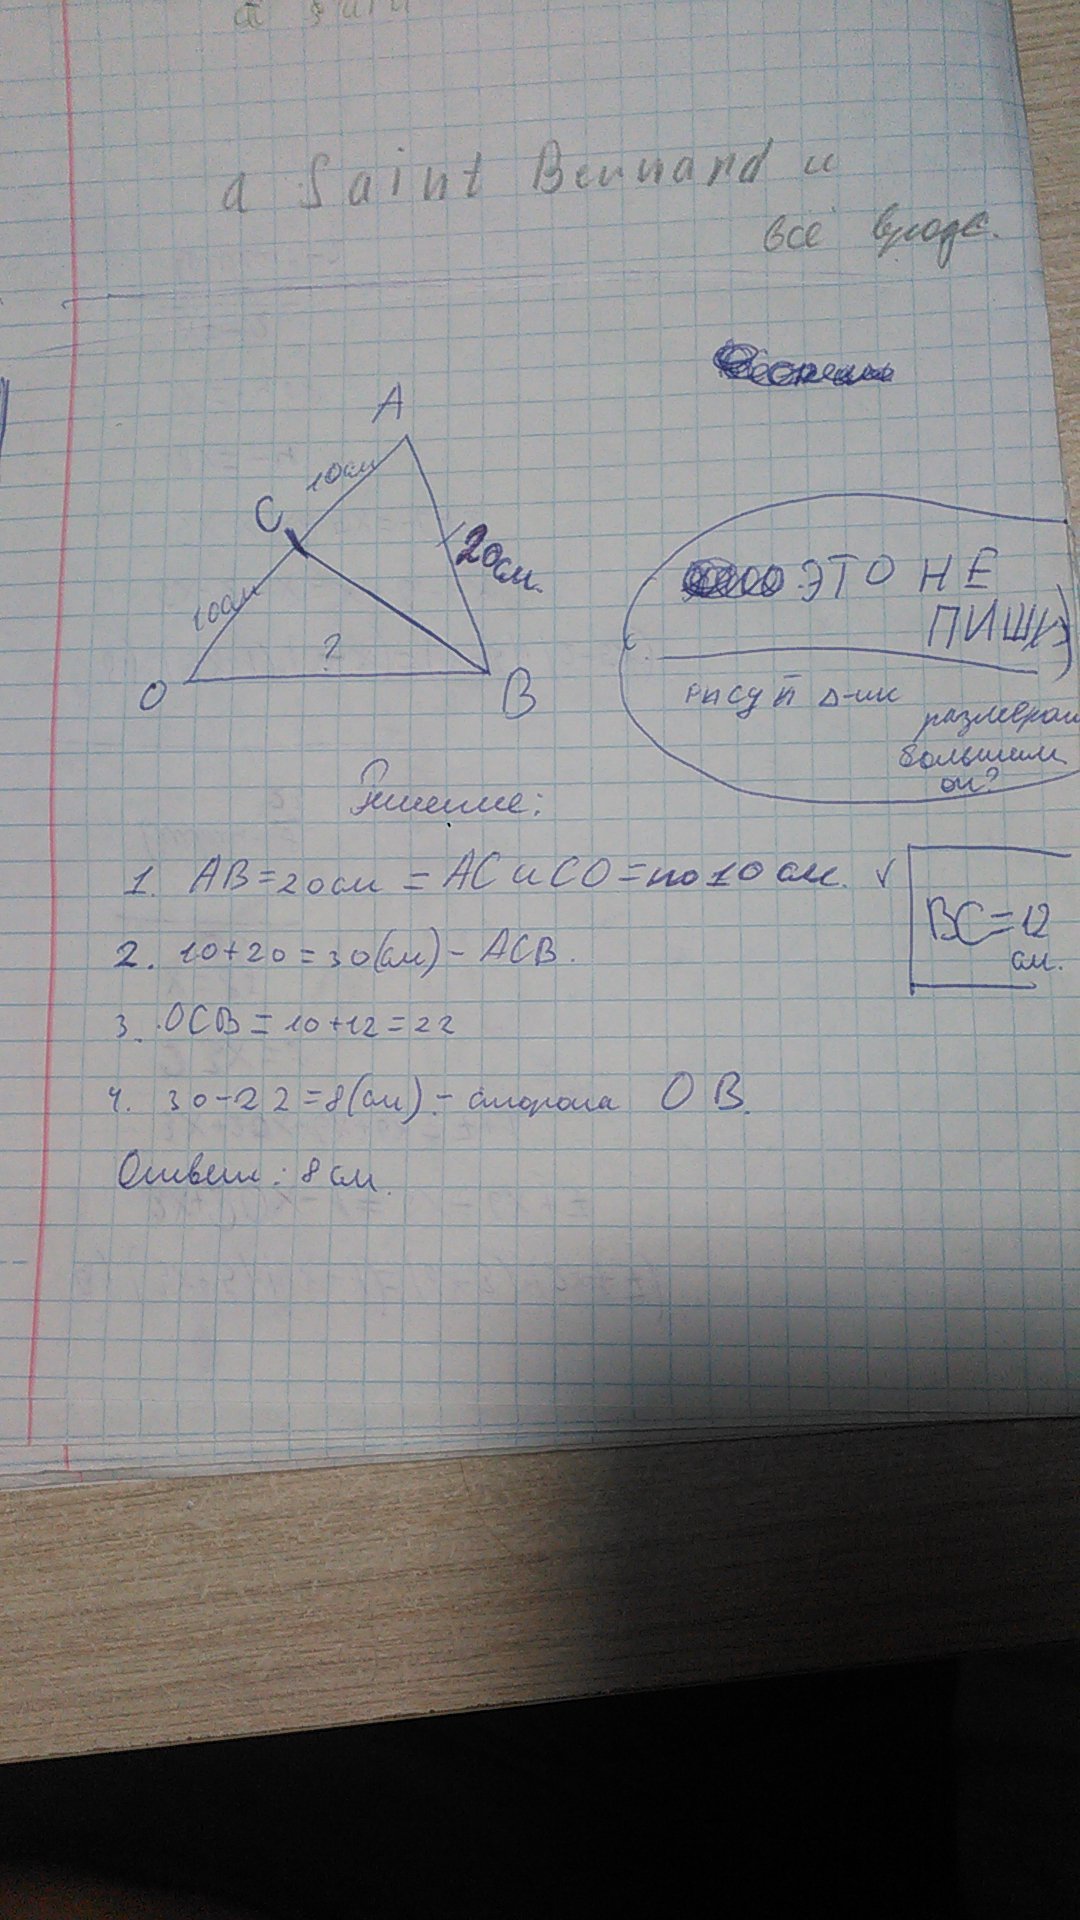 a Saint Bernard и
всё вроде.
A
10см
C
20см.
10см
?
O
B
ЭТО НЕ
ПИШИ)
рисуй Δ-ик
размером
большим
ок?
Решение:
1. AB=20см = AC и CO = по 10 см. √
BC=12
см.
2. 10+20=30(см) - ACB.
3. OCB = 10+12=22
4. 30-22=8(см) - сторона OB.
Ответ: 8 см.